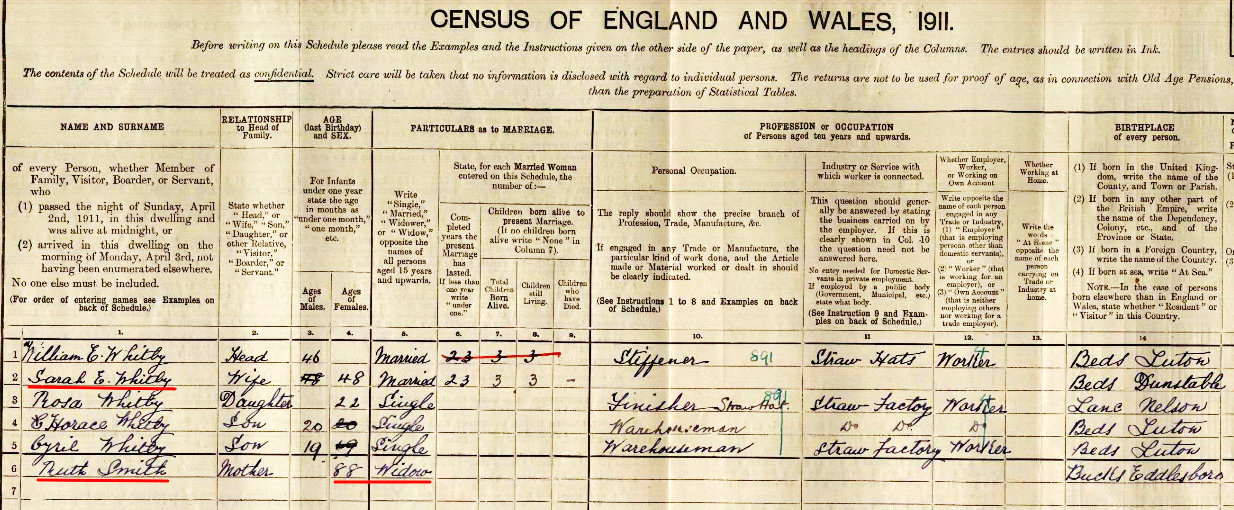 CENSUS OF ENGLAND AND WALES, 1911.
Before writing on this Schedule please read the Examples and the Instructions given on the other side of the paper, as well as the headings of the Columns. The entries should be written in Ink.
The contents of the Schedule will be treated as confidential. Strict care will be taken that no information is disclosed with regard to individual persons. The returns are not to be used for proof of age, as in connection with Old Age Pensions,
than the preparation of Statistical Tables.
NAME AND SURNAME
of every Person, whether Member of
Family, Visitor, Boarder, or Servant,
who
(1) passed the night of Sunday, April
2nd, 1911, in this dwelling and
was alive at midnight, or
(2) arrived in this dwelling on the
morning of Monday, April 3rd, not
having been enumerated elsewhere.
No one else must be included.
(For order of entering names see Examples on
back of Schedule.)
RELATIONSHIP
to Head of
Family.
State whether
"Head," or
"Wife," "Son,"
"Daughter," or
other Relative,
"Visitor,"
"Boarder," or
"Servant."
AGE
(last Birthday)
and SEX.
For Infants
under one year
state the age
in months as
"under one month,"
"one month,"
etc.
Ages
of
Males.
Ages
of
Females.
PARTICULARS as to MARRIAGE.
Write
"Single,"
"Married,"
"Widower,"
or "Widow,"
opposite the
names of
all persons
aged 15 years
and upwards.
State, for each Married Woman
entered on this Schedule, the
number of:—
Com-
pleted
years the
present
Marriage
has
lasted.
If less than
one year
write
"under
one."
Children born alive to
present Marriage.
(If no children born
alive write "None" in
Column 7).
Total
Children
Born
Alive.
Children
still
Living.
Children
who
have
Died.
PROFESSION or OCCUPATION
of Persons aged ten years and upwards.
Personal Occupation.
The reply should show the precise branch of
Profession, Trade, Manufacture, &c.
If engaged in any Trade or Manufacture, the
particular kind of work done, and the Article
made or Material worked or dealt in should
be clearly indicated.
(See Instructions 1 to 8 and Examples on back
of Schedule.)
Industry or Service with
which worker is connected.
This question should gener-
ally be answered by stating
the business carried on by
the employer. If this is
clearly shown in Col. 10
the question need not be
answered here.
No entry needed for Domestic Ser-
vants in private employment.
If employed by a public body
(Government, Municipal, etc.)
state what body.
(See Instruction 9 and Exam-
ples on back of Schedule.)
Whether Employer,
Worker,
or Working on
Own Account
Write opposite the
name of each person
engaged in any
Trade or Industry,
(1) "Employer"
(that is employing
persons other than
domestic servants),
or
(2) "Worker" (that
is working for an
employer), or
(3) "Own Account"
(that is neither
employing others
nor working for a
trade employer).
Whether
Working at
Home.
Write the
words
"At Home"
opposite the
name of each
person
carrying on
Trade or
Industry at
home.
BIRTHPLACE
of every person.
(1) If born in the United King-
dom, write the name of the
County, and Town or Parish.
(2) If born in any other part of
the British Empire, write
the name of the Dependency,
Colony, etc., and of the
Province or State.
(3) If born in a Foreign Country,
write the name of the Country.
(4) If born at sea, write "At Sea."
NOTE.—In the case of persons
born elsewhere than in England or
Wales, state whether "Resident" or
"Visitor" in this Country.
1. 2. 3. 4. 5. 6. 7. 8. 9. 10. 11 12. 13. 14
1 William E. Whitby Head 46 Married 23 3 3 Stiffener 891 Straw Hats Worker Beds Luton
2 Sarah E. Whitby Wife 48 48 Married 23 3 3 - Beds Dunstable
3 Rosa Whitby Daughter 22 Single Finisher Straw Hat. 891 Straw Factory Worker Lanc Nelson
4 C Horace Whitby Son 20 20 Single Warehouseman Do Do Do Beds Luton
5 Cyril Whitby Son 19 19 Single Warehouseman Straw Factory Worker Beds Luton
6 Ruth Smith Mother 88 Widow Bucks Eddlesboro
7